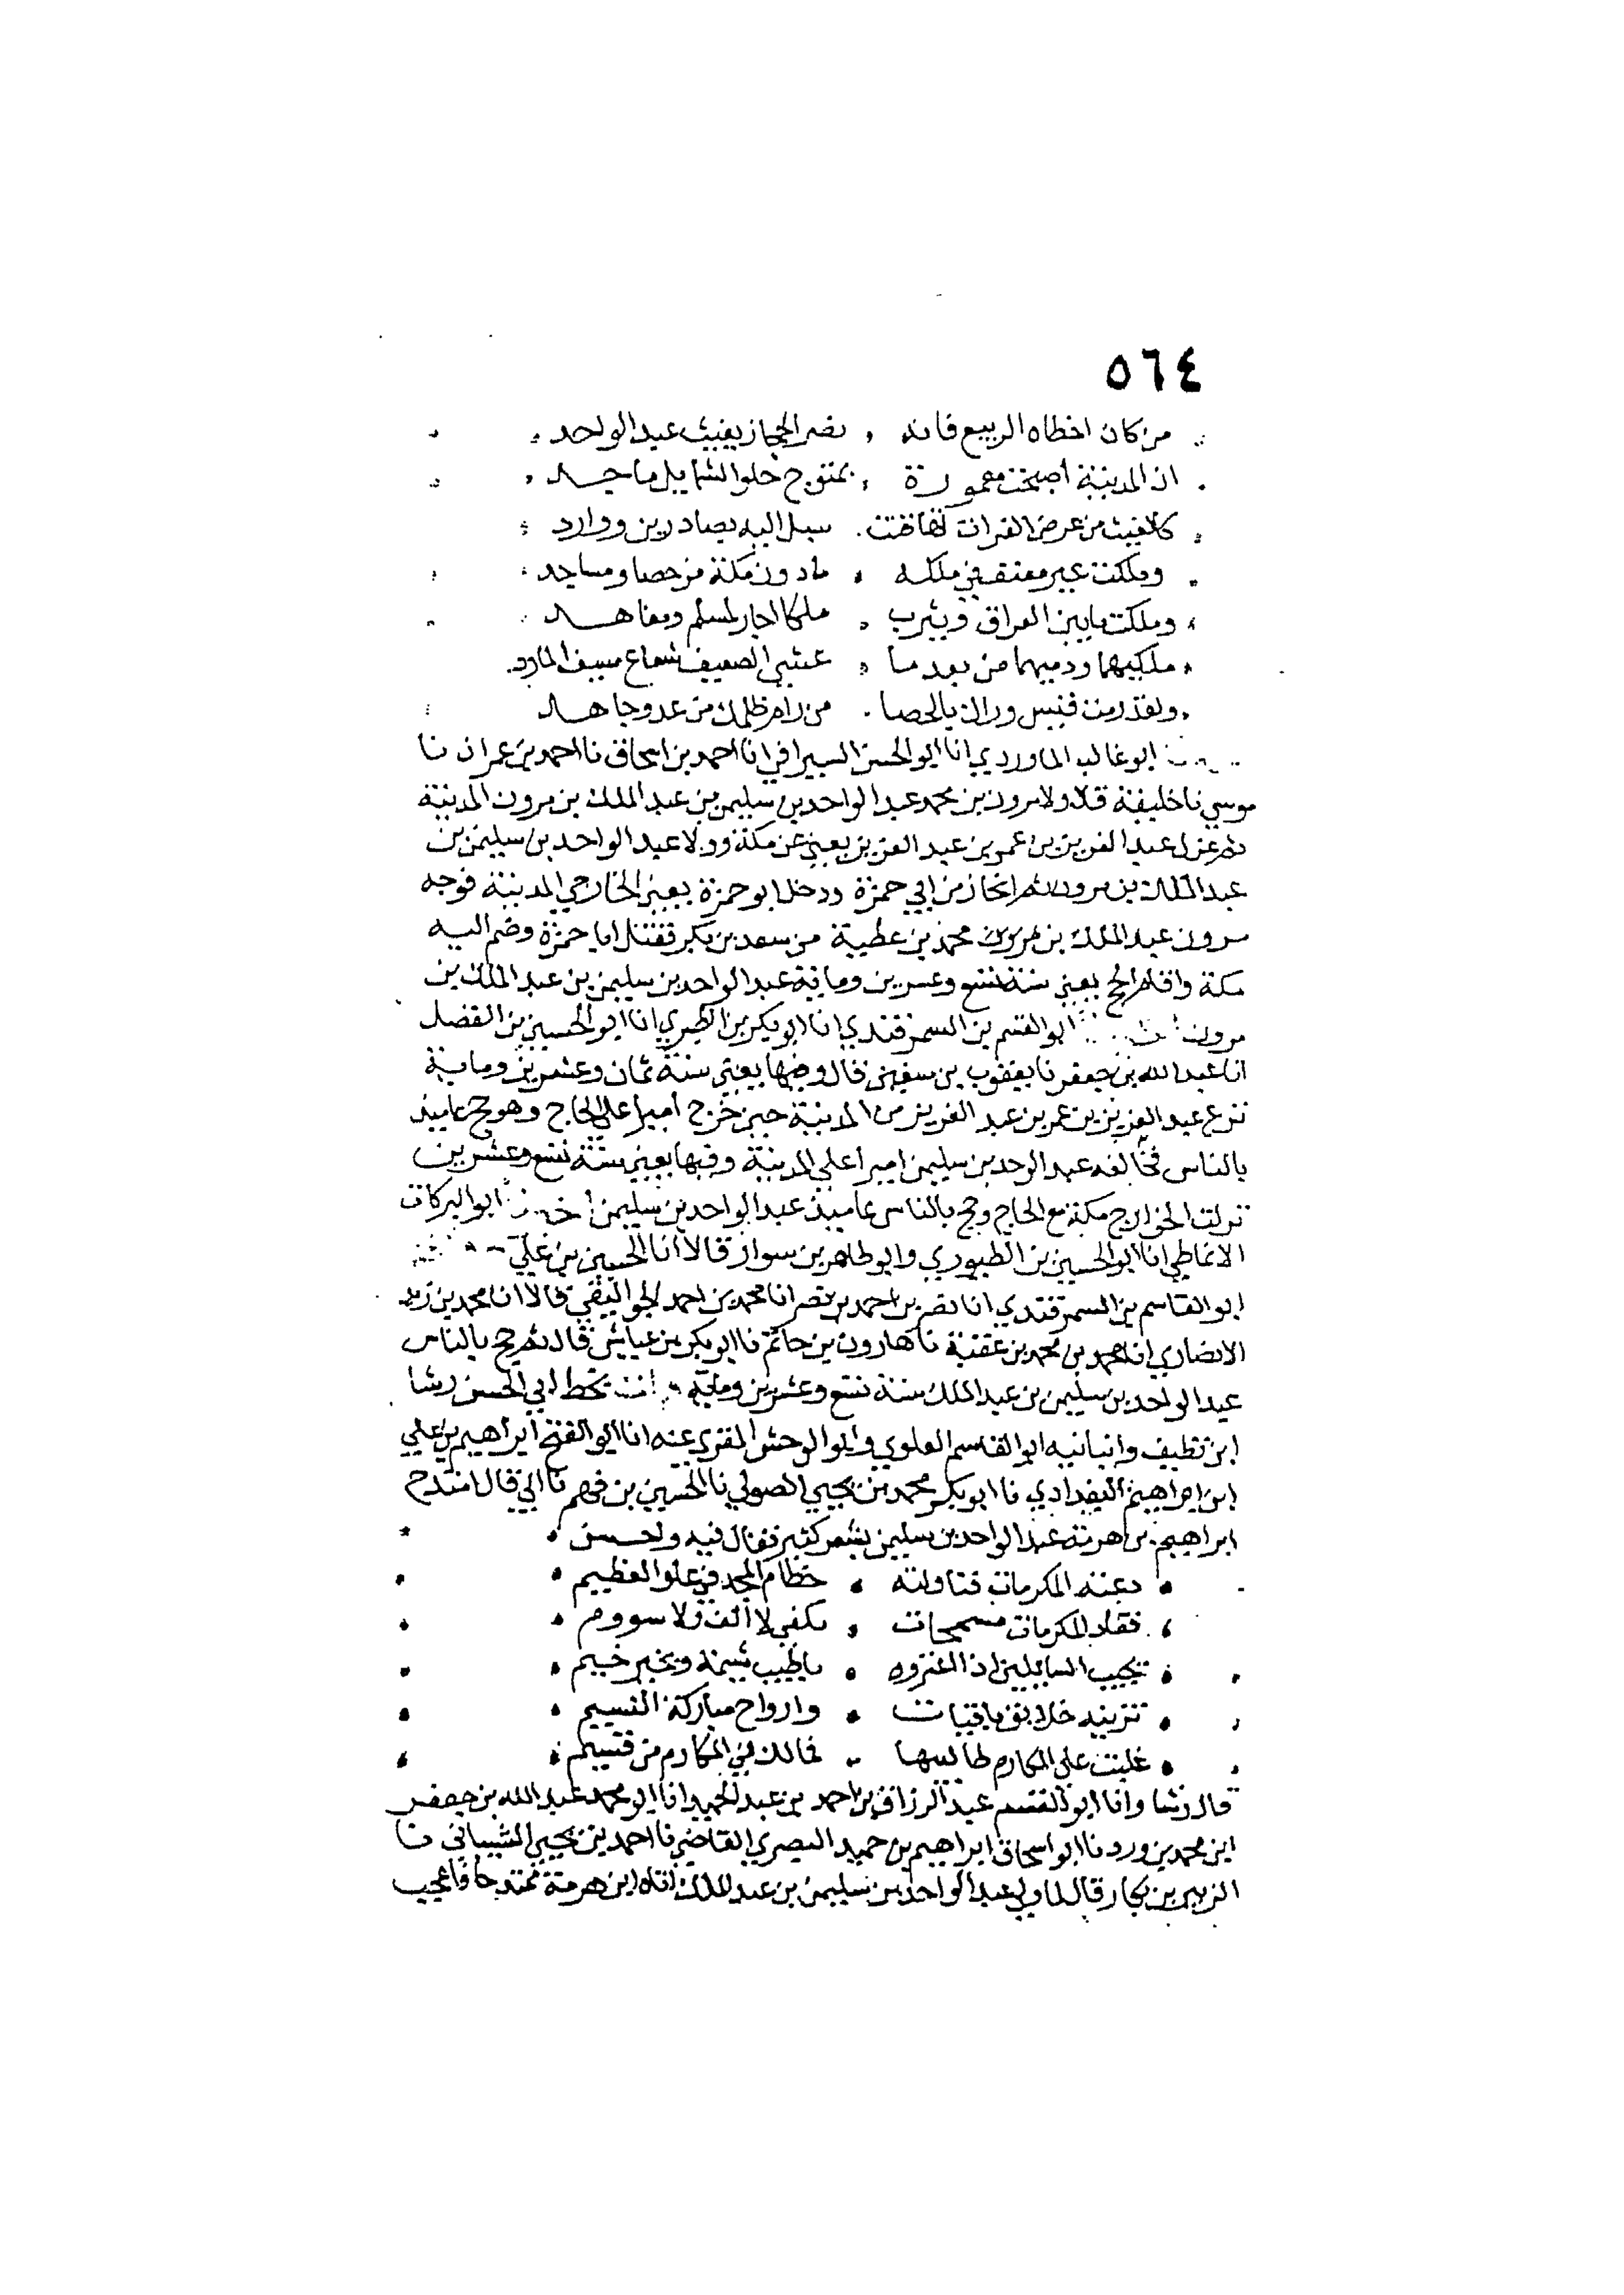 ٥٦٤
من كان اخطاه الربيع فانه نضر الحجاز بغيث عبد الواحد
ان المدينة اصبحت معمورة بمتوج حلو الشمايل ماجد
كالغيث من عرض الفرات تهافتت سبل اليه بصادرين ووارد
وملكت غير معنف في ملكه مادون مكة من حصا ومساجد
وملكت مابين العراق ويثرب ملكا اجار لمسلم ومعاهد
ملكيهما ودميهما من بعد ما غشي الضعيف شعاع سيف المارد
ولقد رمت قيس وراك بالحصا من رام ظلمك من عدو جاهد
ابو غالب الماوردي انا ابو الحسن السيرافي انا احمد بن اسحاق نا احمد بن عمران نا
موسي نا خليفة قال ولا مرون بن محمد عبد الواحد بن سليمن بن عبد الملك بن مرون المدينة
ثم عزل عبد العزيز بن عمر بن عبد العزيز يعني عن مكة وولا عبد الواحد بن سليمن بن
عبد الملك بن مرون ثم انحاز من ابي حمزة ودخل ابو حمزة يعني الخارجي المدينة فوجه
مرون عبد الملك بن محمد بن عطية من سعد بن بكر فقتل ابا حمزة وضم اليه
مكة واقام الحج يعني سنة تسع وعشرين ومايه عبد الواحد بن سليمن بن عبد الملك بن
مرون ابو القسم بن السمرقندي انا ابو بكر بن الطبري انا ابو الحسين بن الفضل
انا عبد الله بن جعفر نا يعقوب بن سفين قال وفيها يعني سنة ثمان وعشرين ومايه
نزع عبد العزيز بن عمر بن عبد العزيز من المدينة حين خرج اميرا علي الحاج وهو حج عاميذ
بالناس فخالفه عبد الوحد بن سليمن اميرا علي المدينة وفيها يعني سنة تسع وعشرين
نزلت الخوارج مكة مع الحاج وحج بالناس عاميذ عبد الواحد بن سليمن ابو البركات
الانماطي انا ابو الحسين بن الطيوري وابو طاهر بن سوار قالا انا الحسين بن علي
ابو القاسم بن السمرقندي انا نصر بن احمد بن نصر انا محمد بن احمد الجواليقي قالا انا محمد بن زيد
الانصاري انا محمد بن محمد بن عقبة نا هارون بن حاتم نا ابو بكر بن عياش قال ثم حج بالناس
عبد الواحد بن سليمن بن عبد الملك سنة تسع وعشرين ومايه بخط ابي الحسن رشا
ابن نظيف وانبانيه ابو القاسم العلوي وابو الوحش المقري عنه انا ابو الفتح ابراهيم بن علي
ابن ابراهيم البغدادي نا ابو بكر محمد بن يحيي الصولي نا الحسين بن فهم نا ابي قال امتدح
ابراهيم بن هرمة عبد الواحد بن سليمن بشعر كثير فقال فيه واحسن
دعته المكرمات فناولته خطام المجد في علو العظيم
فقاد المكرمات مسمحات بكفي لا الف ولا سووم
تجيب السايلين اذا اعتروه باطيب شيمة وبخير خيم
تزينه خلايق باقيات وارواح مباركة النسيم
غلبت علي المكارم طالبيها فمالك في المكارم من قسيم
قال رشا وانا ابو القسم عبد الرزاق بن احمد بن عبد الحميد انا ابو محمد عبد الله بن جعفر
ابن محمد بن ورد نا ابو اسحاق ابراهيم بن حميد البصري القاضي نا احمد بن يحيي الشيباني نا
الزبير بن بكار قال لما ولي عبد الواحد بن سليمن بن عبد الملك اتاه ابن هرمة ممتدحا فاعجب